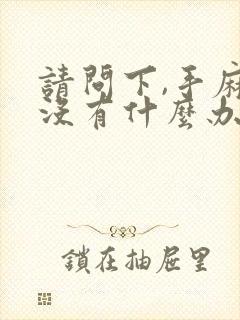 請問下,手麻
沒有什麼办
鎖在抽屉里